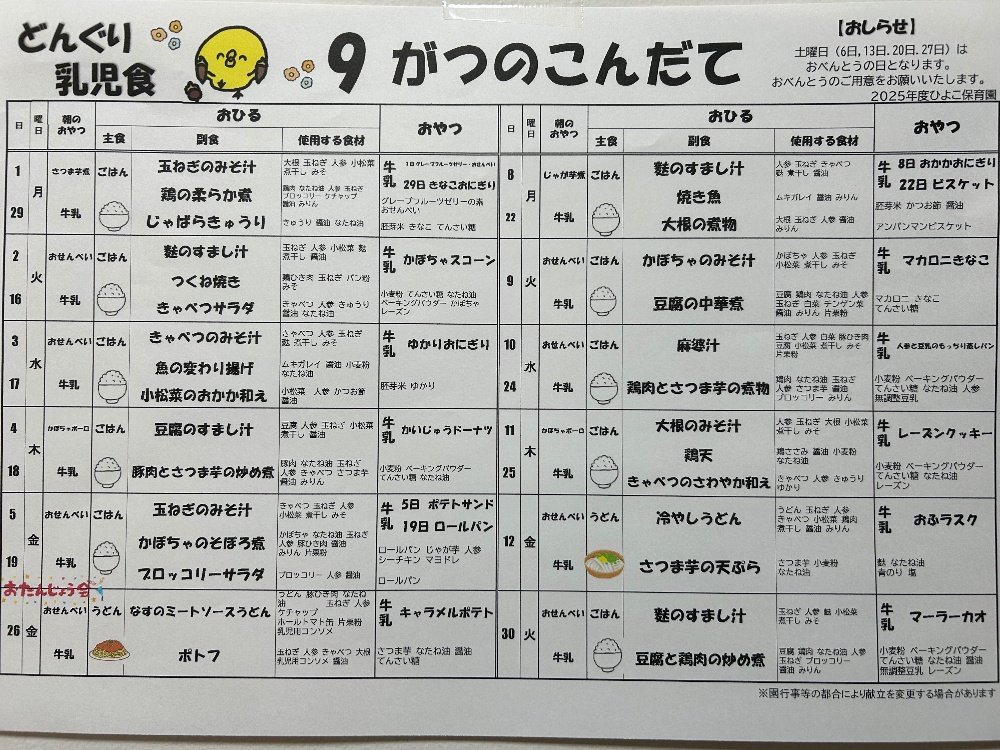 どんぐり
乳児食
9がつのこんだて
【おしらせ】
土曜日（6日,13日,20日,27日）は
おべんとうの日となります。
おべんとうのご用意をお願いいたします。
2025年度ひよこ保育園
日 曜日 朝のおやつ おひる おやつ
主食 副食 使用する食材
1 29 月
さつま芋煮 牛乳
ごはん
玉ねぎのみそ汁
大根 玉ねぎ 人参 小松菜
煮干し みそ
鶏の柔らか煮
鶏肉 なたね油 人参 玉ねぎ
ブロッコリー ケチャップ
醤油 みりん
じゃばらきゅうり
きゅうり 醤油 なたね油
牛乳
1日グレープフルーツゼリー・おせんべい
29日 きなこおにぎり
グレープフルーツゼリーの素
おせんべい
胚芽米 きなこ てんさい糖
2 16 火
おせんべい 牛乳
ごはん
麩のすまし汁
玉ねぎ 人参 小松菜 麩
煮干し 醤油
つくね焼き
鶏ひき肉 玉ねぎ パン粉
みそ
きゃべつサラダ
きゃべつ 人参 きゅうり
醤油 なたね油
牛乳
かぼちゃスコーン
小麦粉 てんさい糖 なたね油
ベーキングパウダー かぼちゃ
レーズン
3 17 水
おせんべい 牛乳
ごはん
きゃべつのみそ汁
きゃべつ 人参 玉ねぎ
麩 煮干し みそ
魚の変わり揚げ
ムキガレイ 醤油 小麦粉
なたね油
小松菜のおかか和え
小松菜 人参 かつお節
醤油
牛乳
ゆかりおにぎり
胚芽米 ゆかり
4 18 木
かぼちゃボーロ 牛乳
ごはん
豆腐のすまし汁
豆腐 人参 玉ねぎ 小松菜
煮干し 醤油
豚肉とさつま芋の炒め煮
豚肉 なたね油 玉ねぎ
人参 きゃべつ さつま芋
醤油 みりん
牛乳
かいじゅうドーナツ
小麦粉 ベーキングパウダー
てんさい糖 なたね油
5 19 金
おせんべい 牛乳
ごはん
玉ねぎのみそ汁
きゃべつ 玉ねぎ 人参
小松菜 煮干し みそ
かぼちゃのそぼろ煮
かぼちゃ なたね油 玉ねぎ
人参 豚ひき肉 醤油
みりん 片栗粉
ブロッコリーサラダ
ブロッコリー 人参 醤油
牛乳
5日 ポテトサンド
19日 ロールパン
ロールパン じゃが芋 人参
シーチキン マヨドレ
ロールパン
おたんじょう会
26 金
おせんべい 牛乳
うどん
なすのミートソースうどん
うどん 豚ひき肉 なたね
油 玉ねぎ 人参
ケチャップ
ホールトマト缶 片栗粉
乳児用コンソメ
ポトフ
玉ねぎ 人参 きゃべつ 大根
乳児用コンソメ 醤油
牛乳
キャラメルポテト
さつま芋 なたね油 醤油
てんさい糖
日 曜日 朝のおやつ おひる おやつ
主食 副食 使用する食材
8 22 月
じゃが芋煮 牛乳
ごはん
麩のすまし汁
人参 玉ねぎ きゃべつ
麩 煮干し 醤油
焼き魚
ムキガレイ 醤油 みりん
大根の煮物
大根 玉ねぎ 人参 醤油
みりん
牛乳
8日 おかかおにぎり
22日 ビスケット
胚芽米 かつお節 醤油
アンパンマンビスケット
9 火
おせんべい 牛乳
ごはん
かぼちゃのみそ汁
かぼちゃ 人参 玉ねぎ
小松菜 煮干し みそ
豆腐の中華煮
豆腐 鶏肉 なたね油 人参
玉ねぎ 白菜 チンゲン菜
醤油 みりん 片栗粉
牛乳
マカロニきなこ
マカロニ きなこ
てんさい糖
10 24 水
おせんべい 牛乳
ごはん
麻婆汁
玉ねぎ 人参 白菜 豚ひき肉
豆腐 小松菜 煮干し みそ
片栗粉
鶏肉とさつま芋の煮物
鶏肉 なたね油 玉ねぎ
人参 さつま芋 醤油
ブロッコリー みりん
牛乳
人参と豆乳のもっちり蒸しパン
小麦粉 ベーキングパウダー
てんさい糖 なたね油 人参
無調整豆乳
11 25 木
かぼちゃボーロ 牛乳
ごはん
大根のみそ汁
人参 玉ねぎ 大根 小松菜
煮干し みそ
鶏天
鶏ささみ 醤油 小麦粉
なたね油
きゃべつのさわやか和え
きゃべつ 人参 きゅうり
ゆかり
牛乳
レーズンクッキー
小麦粉 ベーキングパウダー
てんさい糖 なたね油
レーズン
12 金
おせんべい 牛乳
うどん
冷やしうどん
うどん 玉ねぎ 人参
きゃべつ 小松菜 鶏肉
煮干し 醤油
さつま芋の天ぷら
さつま芋 小麦粉
なたね油
牛乳
おふラスク
麩 なたね油
青のり 塩
30 火
おせんべい 牛乳
ごはん
麩のすまし汁
玉ねぎ 人参 麩 小松菜
煮干し みそ
豆腐と鶏肉の炒め煮
豆腐 鶏肉 なたね油 人参
玉ねぎ ブロッコリー
醤油 みりん
牛乳
マーラーカオ
小麦粉 ベーキングパウダー
てんさい糖 なたね油 醤油
無調整豆乳 レーズン
※園行事等の都合により献立を変更する場合があります